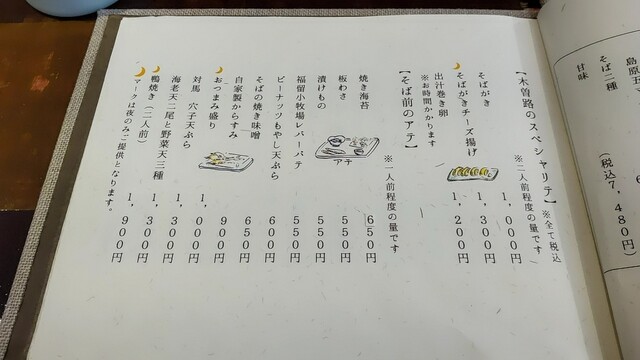 島原五
そば二種
(税込7,480円)
甘味
【木曽路のスペシャリテ】※全て税込
※二人前程度の量です
そばがき 1,000円
そばがきチーズ揚げ 1,300円
出汁巻き卵 1,200円
※お時間かかります
【そば前のアテ】※二人前程度の量です
焼き海苔 650円
板わさ 550円
アテ
漬けもの 550円
福留小牧場レバーパテ 550円
ピーナッツもやし天ぷら 600円
そばの焼き味噌 650円
自家製からすみ 900円
おつまみ盛り 1,000円
対馬 穴子天ぷら 1,300円
海老天二尾と野菜天三種 1,300円
鴨焼き(二人前) 1,900円
マークは夜のみご提供となります。